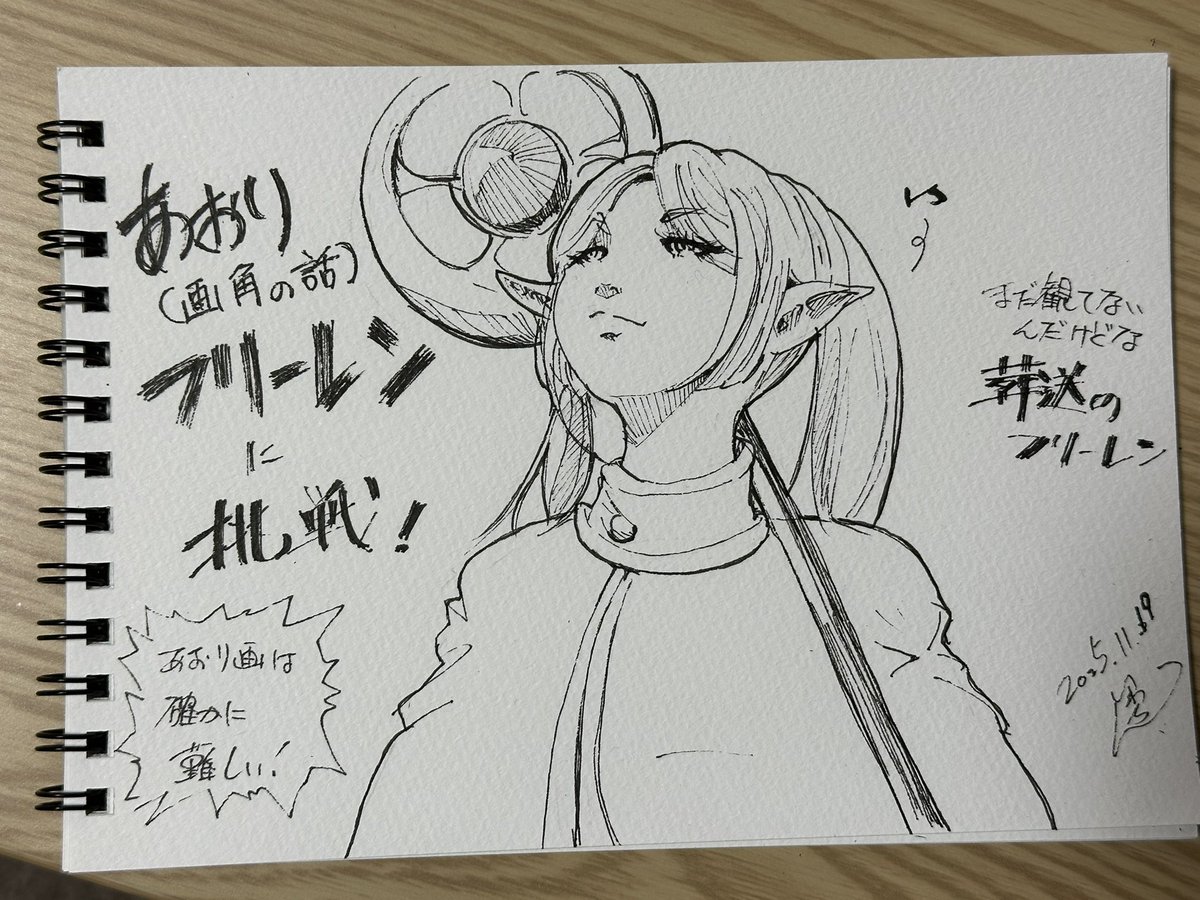 あおり
(画角の話)
フリーレン
に
挑戦!
あおり画は
確かに
難しい!
まだ観てない
んだけどな
葬送の
フリーレン
2025.11.19